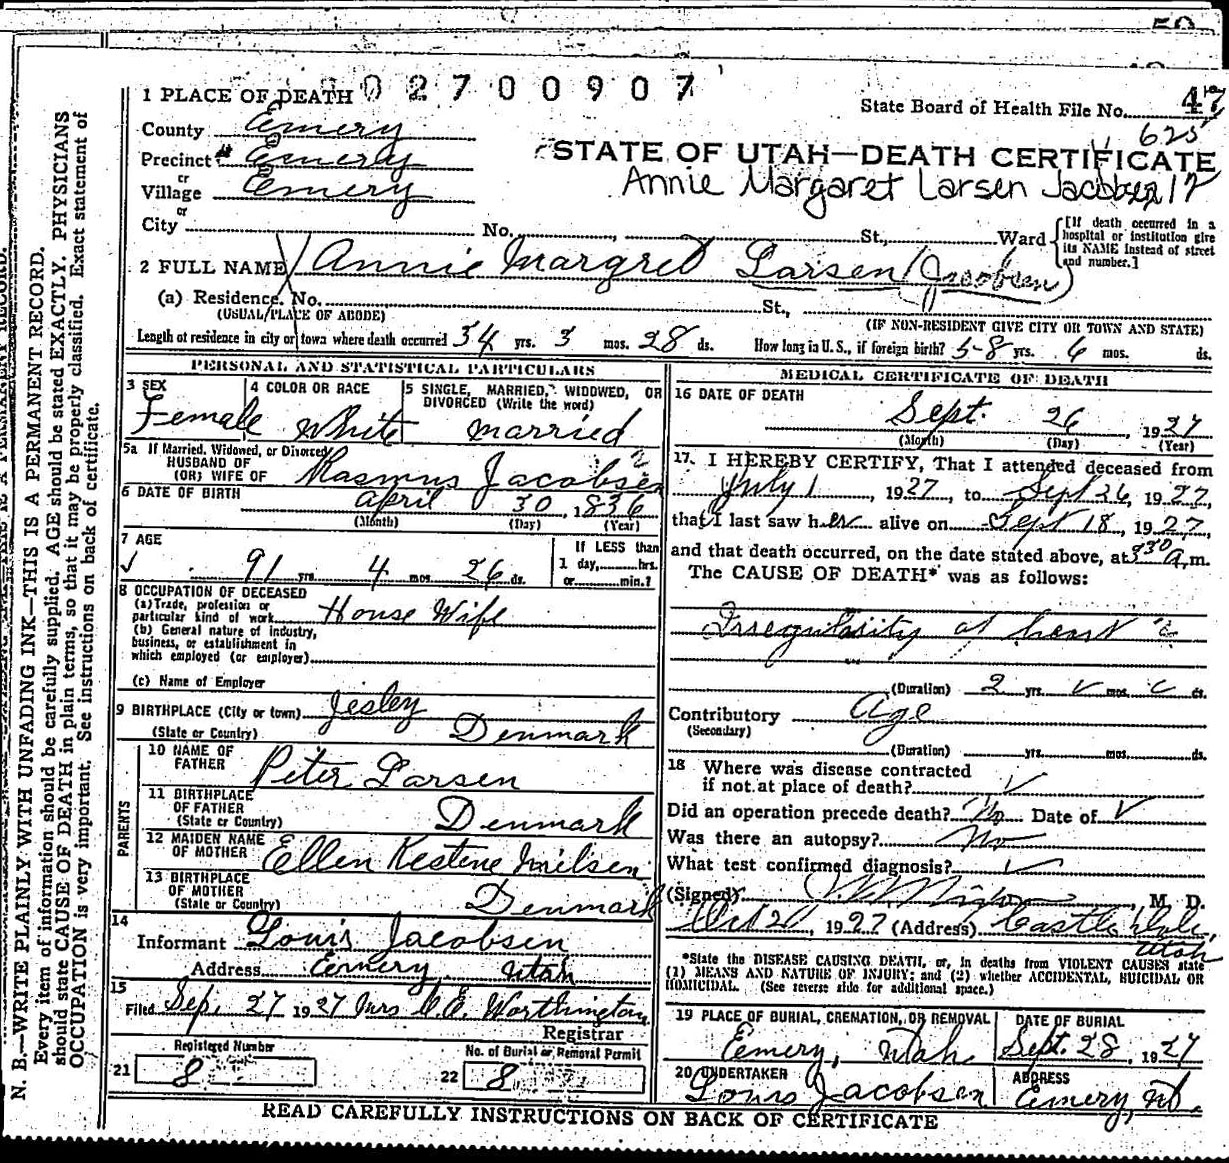 02700907
State Board of Health File No. 47
625
1 PLACE OF DEATH
County Emery
Precinct Emery
or
Village Emery
or
City No. , St., Ward
[If death occurred in a hospital or institution give its NAME instead of street and number.]
STATE OF UTAH—DEATH CERTIFICATE
Annie Margaret Larsen Jacobsen 17
2 FULL NAME Annie Margret Larsen (Jacobsen)
(a) Residence. No. St.,
(USUAL PLACE OF ABODE) (IF NON-RESIDENT GIVE CITY OR TOWN AND STATE)
Length of residence in city or town where death occurred 34 yrs. 3 mos. 28 ds. How long in U.S., if foreign birth? 58 yrs. 6 mos. ds.
PERSONAL AND STATISTICAL PARTICULARS
3 SEX Female
4 COLOR OR RACE White
5 SINGLE, MARRIED, WIDOWED, OR DIVORCED (Write the word) married
5a If Married, Widowed, or Divorced
HUSBAND OF
(OR) WIFE OF Rasmus Jacobsen
6 DATE OF BIRTH April 30, 1836
(Month) (Day) (Year)
7 AGE
91 yrs. 4 mos. 26 ds.
If LESS than
1 day, hrs.
or min.?
8 OCCUPATION OF DECEASED
(a) Trade, profession or
particular kind of work House Wife
(b) General nature of industry,
business, or establishment in
which employed (or employer)
(c) Name of Employer
9 BIRTHPLACE (City or town) Jesley
(State or Country) Denmark
PARENTS
10 NAME OF
FATHER Peter Larsen
11 BIRTHPLACE
OF FATHER
(State or Country) Denmark
12 MAIDEN NAME
OF MOTHER Ellen Kestene Nielsen
13 BIRTHPLACE
OF MOTHER
(State or Country) Denmark
14
Informant Louis Jacobsen
Address Emery Utah
15
Filed Sep. 27 1927 Mrs C. E. Worthington
Registrar
Registered Number
21 8
No. of Burial or Removal Permit
22 8
MEDICAL CERTIFICATE OF DEATH
16 DATE OF DEATH
Sept. 26, 1927
(Month) (Day) (Year)
17. I HEREBY CERTIFY, That I attended deceased from
July 1, 1927, to Sept 26, 1927,
that I last saw her alive on Sept 18, 1927,
and that death occurred, on the date stated above, at 330 a.m.
The CAUSE OF DEATH* was as follows:
Irregularity of heart
(Duration) 2 yrs. mos. ds.
Contributory Age
(Secondary)
(Duration) yrs. mos. ds.
18 Where was disease contracted
if not at place of death?
Did an operation precede death? No Date of
Was there an autopsy? No
What test confirmed diagnosis?
(Signed) , M. D.
Oct 21, 1927 (Address) Castle Dale, Utah
*State the DISEASE CAUSING DEATH, or, in deaths from VIOLENT CAUSES state
(1) MEANS AND NATURE OF INJURY; and (2) whether ACCIDENTAL, SUICIDAL OR
HOMICIDAL. (See reverse side for additional space.)
19 PLACE OF BURIAL, CREMATION, OR REMOVAL
Emery, Utah
DATE OF BURIAL
Sept. 28, 1927
20 UNDERTAKER
Louis Jacobsen
ADDRESS
Emery, Ut.
READ CAREFULLY INSTRUCTIONS ON BACK OF CERTIFICATE
N. B.—WRITE PLAINLY WITH UNFADING INK—THIS IS A PERMANENT RECORD.
Every item of information should be carefully supplied. AGE should be stated EXACTLY. PHYSICIANS
should state CAUSE OF DEATH in plain terms, so that it may be properly classified. Exact statement of
OCCUPATION is very important. See instructions on back of certificate.